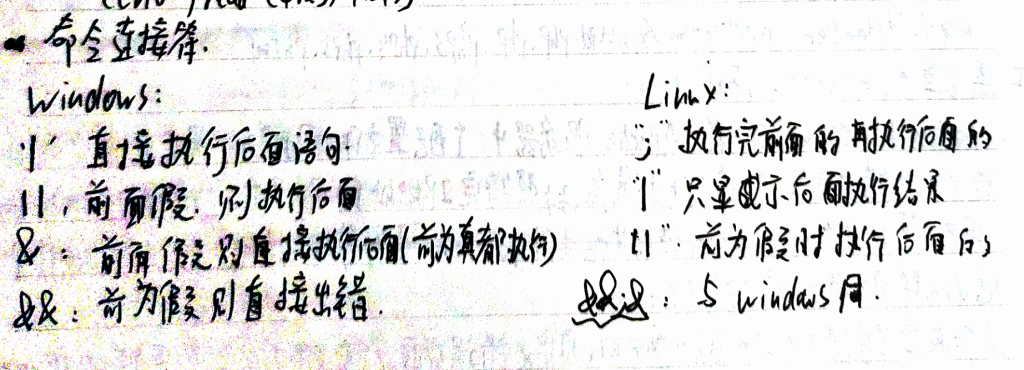 命令连接符.
Windows:
'|' 直接执行后面语句.
||, 前面假, 则执行后面
&: 前面假则直接执行后面(前为真都执行)
&&: 前为假则直接出错.
Linux:
";" 执行完前面的再执行后面的
"|" 只显示后面执行结果
"||". 前为假时执行后面的
&&;&: 与windows同.